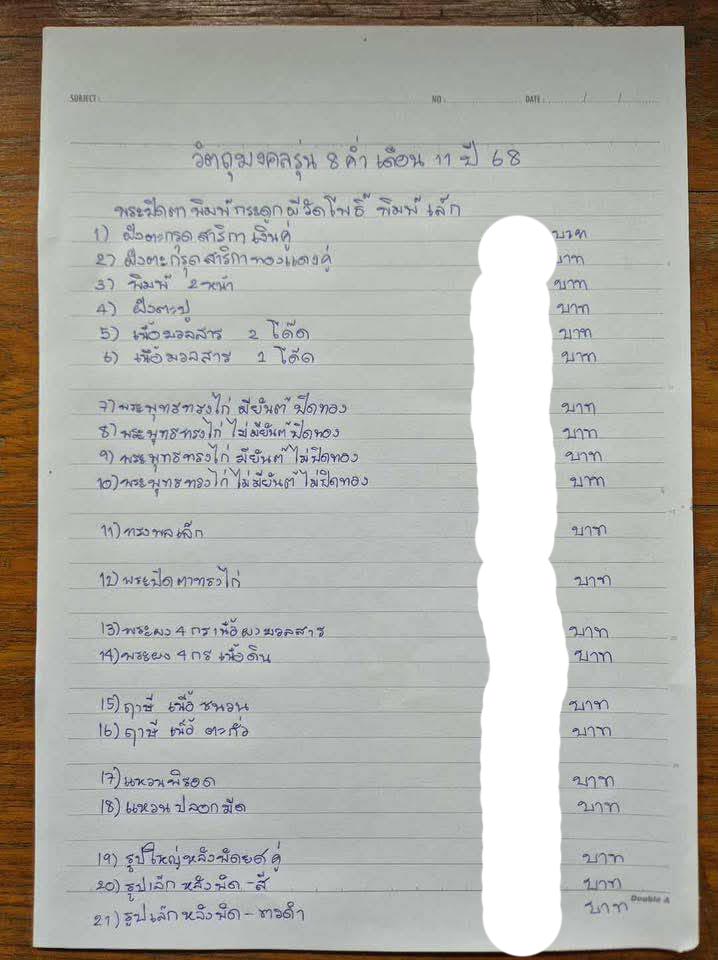 SUBJECT: NO: DATE: / /
วัตถุมงคลรุ่น 8 ค่ำ เดือน 11 ปี 68
พระปิดตา พิมพ์กระดูกผีวัดโพธิ์ พิมพ์เล็ก
1) ฝังตะกรุดสาริกา เงินคู่ บาท
2) ฝังตะกรุดสาริกาทองแดงคู่ บาท
3) พิมพ์ 2 หน้า บาท
4) ฝังตะปู บาท
5) เนื้อมวลสาร 2 โค๊ด บาท
6) เนื้อมวลสาร 1 โค๊ด บาท
7) พระพุทธทรงไก่ มียันต์ ปิดทอง บาท
8) พระพุทธทรงไก่ ไม่มียันต์ ปิดทอง บาท
9) พระพุทธทรงไก่ มียันต์ ไม่ปิดทอง บาท
10) พระพุทธทรงไก่ ไม่มียันต์ ไม่ปิดทอง บาท
11) ทรงพลเล็ก บาท
12) พระปิดตาทรงไก่ บาท
13) พระผง 4 กร เนื้อผงมวลสาร บาท
14) พระผง 4 กร เนื้อดิน บาท
15) ฤาษี เนื้อ ชนวน บาท
16) ฤาษี เนื้อ ตะกั่ว บาท
17) แหวนพิรอด บาท
18) แหวน ปลอกมีด บาท
19) รูปใหญ่หลังพัดยศคู่ บาท
20) รูปเล็ก หลังพัด - สี บาท
21) รูปเล็ก หลังพัด - ขาวดำ บาท
Double A